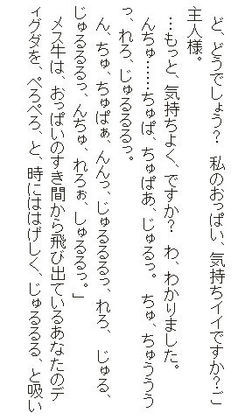 ど、どうでしょう？　私のおっぱい、気持ちイイですか？ご
主人様。
…もっと、気持ちよく、ですか？　わ、わかりました。
んちゅ……ちゅぱ、ちゅぱあ、じゅるっ。　ちゅ、ちゅううう
っ、れろ、じゅるるるっ。
ん、ちゅ、ちゅぱぁ、んんっ、じゅるるるっ、れろ、　じゅる、
じゅるるるっ、んちゅ、れろぉ、しゅるるっ。」
メス牛は、おっぱいのすき間から飛び出ているあなたのデ
ィグダを、ぺろぺろ、と、時にははげしく、じゅるるる、と吸い